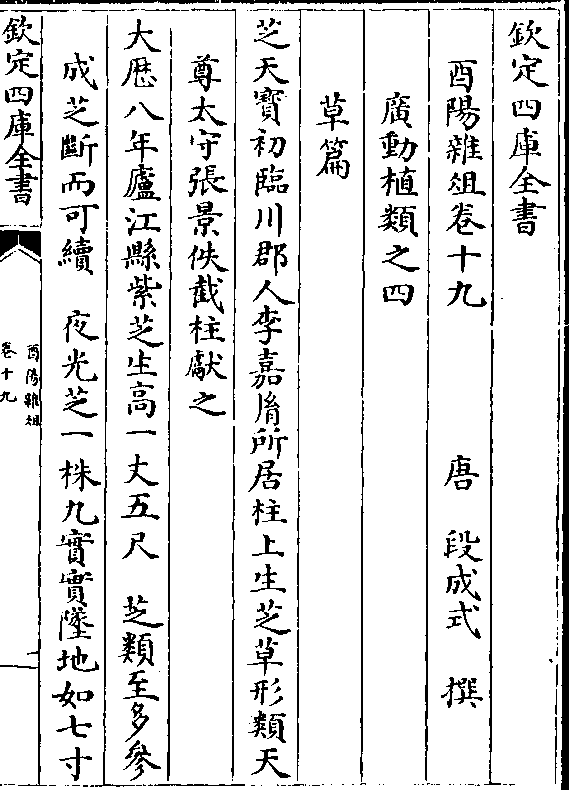 欽定四庫全書
酉陽雜俎卷十九
唐　段成式　撰
廣動植類之四
草篇
芝天寶初臨川郡人李嘉胤所居柱上生芝草形類天
尊太守張景佚截柱獻之
大厯八年廬江縣紫芝生高一丈五尺　芝類至多參
成芝斷而可續　夜光芝一株九實實墜地如七寸
欽定四庫全書
酉陽雜俎
卷十九